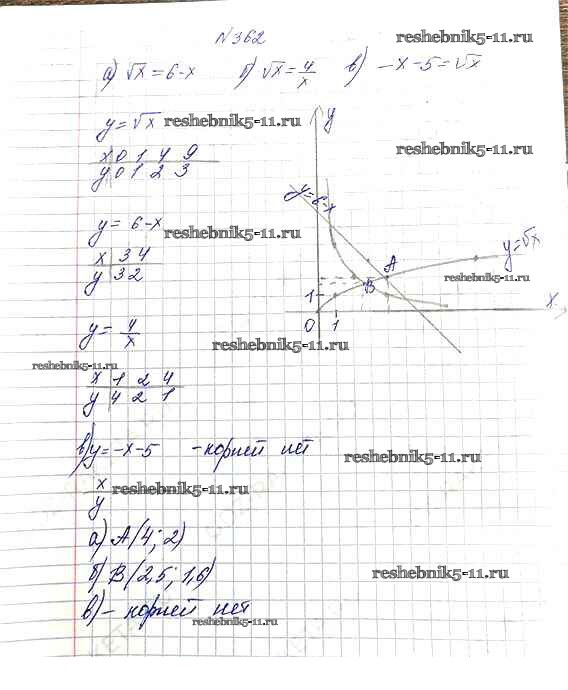 №362
reshebnik5-11.ru
а) √x = 6-x б) √x = 4/x в) -x-5 = √x
y = √x reshebnik5-11.ru
reshebnik5-11.ru
x 0 1 4 9
y 0 1 2 3
y = 6-x
reshebnik5-11.ru
x 3 4
y 3 2
y
y=6-x
A
B
y=√x
reshebnik5-11.ru
1
x
0 1
y = 4/x
reshebnik5-11.ru
reshebnik5-11.ru
x 1 2 4
y 4 2 1
в) y = -x-5 - корней нет
reshebnik5-11.ru
x
reshebnik5-11.ru
y
а) A(4; 2)
б) B(2,5; 1,6)
reshebnik5-11.ru
в) - корней нет
reshebnik5-11.ru